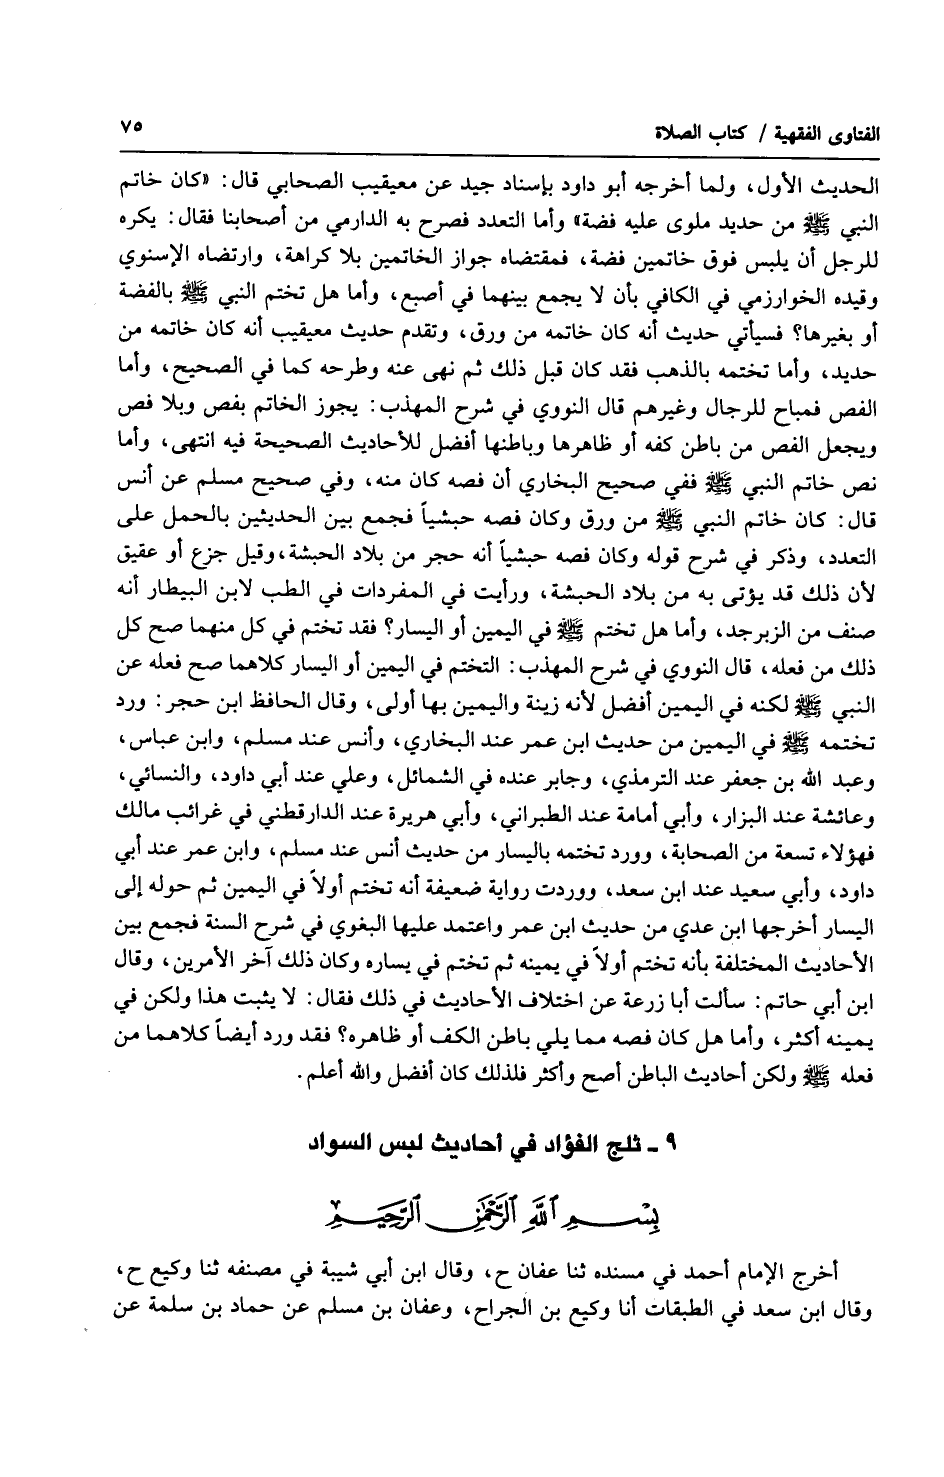 الفتاوى الفقهية / كتاب الصلاة ٧٥
الحديث الأول، ولما أخرجه أبو داود بإسناد جيد عن معيقيب الصحابي قال: «كان خاتم
النبي ﷺ من حديد ملوى عليه فضة» وأما التعدد فصرح به الدارمي من أصحابنا فقال: يكره
للرجل أن يلبس فوق خاتمين فضة، فمقتضاه جواز الخاتمين بلا كراهة، وارتضاه الإسنوي
وقيده الخوارزمي في الكافي بأن لا يجمع بينهما في أصبع، وأما هل تختم النبي ﷺ بالفضة
أو بغيرها؟ فسيأتي حديث أنه كان خاتمه من ورق، وتقدم حديث معيقيب أنه كان خاتمه من
حديد، وأما تختمه بالذهب فقد كان قبل ذلك ثم نهى عنه وطرحه كما في الصحيح، وأما
الفص فمباح للرجال وغيرهم قال النووي في شرح المهذب: يجوز الخاتم بفص وبلا فص
ويجعل الفص من باطن كفه أو ظاهرها وباطنها أفضل للأحاديث الصحيحة فيه انتهى، وأما
نص خاتم النبي ﷺ ففي صحيح البخاري أن فصه كان منه، وفي صحيح مسلم عن أنس
قال: كان خاتم النبي ﷺ من ورق وكان فصه حبشياً فجمع بين الحديثين بالحمل على
التعدد، وذكر في شرح قوله وكان فصه حبشياً أنه حجر من بلاد الحبشة، وقيل جزع أو عقيق
لأن ذلك قد يؤتى به من بلاد الحبشة، ورأيت في المفردات في الطب لابن البيطار أنه
صنف من الزبرجد، وأما هل تختم ﷺ في اليمين أو اليسار؟ فقد تختم في كل منهما صح كل
ذلك من فعله، قال النووي في شرح المهذب: التختم في اليمين أو اليسار كلاهما صح فعله عن
النبي ﷺ لكنه في اليمين أفضل لأنه زينة واليمين بها أولى، وقال الحافظ ابن حجر: ورد
تختمه ﷺ في اليمين من حديث ابن عمر عند البخاري، وأنس عند مسلم، وابن عباس،
وعبد الله بن جعفر عند الترمذي، وجابر عنده في الشمائل، وعلي عند أبي داود، والنسائي،
وعائشة عند البزار، وأبي أمامة عند الطبراني، وأبي هريرة عند الدارقطني في غرائب مالك
فهؤلاء تسعة من الصحابة، وورد تختمه باليسار من حديث أنس عند مسلم، وابن عمر عند أبي
داود، وأبي سعيد عند ابن سعد، ووردت رواية ضعيفة أنه تختم أولاً في اليمين ثم حوله إلى
اليسار أخرجها ابن عدي من حديث ابن عمر واعتمد عليها البغوي في شرح السنة فجمع بين
الأحاديث المختلفة بأنه تختم أولاً في يمينه ثم تختم في يساره وكان ذلك آخر الأمرين، وقال
ابن أبي حاتم: سألت أبا زرعة عن اختلاف الأحاديث في ذلك فقال: لا يثبت هذا ولكن في
يمينه أكثر، وأما هل كان فصه مما يلي باطن الكف أو ظاهره؟ فقد ورد أيضاً كلاهما من
فعله ﷺ ولكن أحاديث الباطن أصح وأكثر فلذلك كان أفضل والله أعلم.
٩ ـ ثلج الفؤاد في أحاديث لبس السواد
بِسْمِ اللَّهِ الرَّحْمَٰنِ الرَّحِيمِ
أخرج الإمام أحمد في مسنده ثنا عفان ح، وقال ابن أبي شيبة في مصنفه ثنا وكيع ح،
وقال ابن سعد في الطبقات أنا وكيع بن الجراح، وعفان بن مسلم عن حماد بن سلمة عن